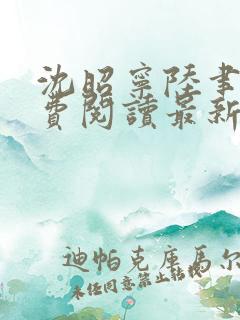 沈昭寧陸書
費閱讀最新
迪帕克庫馬爾
未任同意禁止轉載